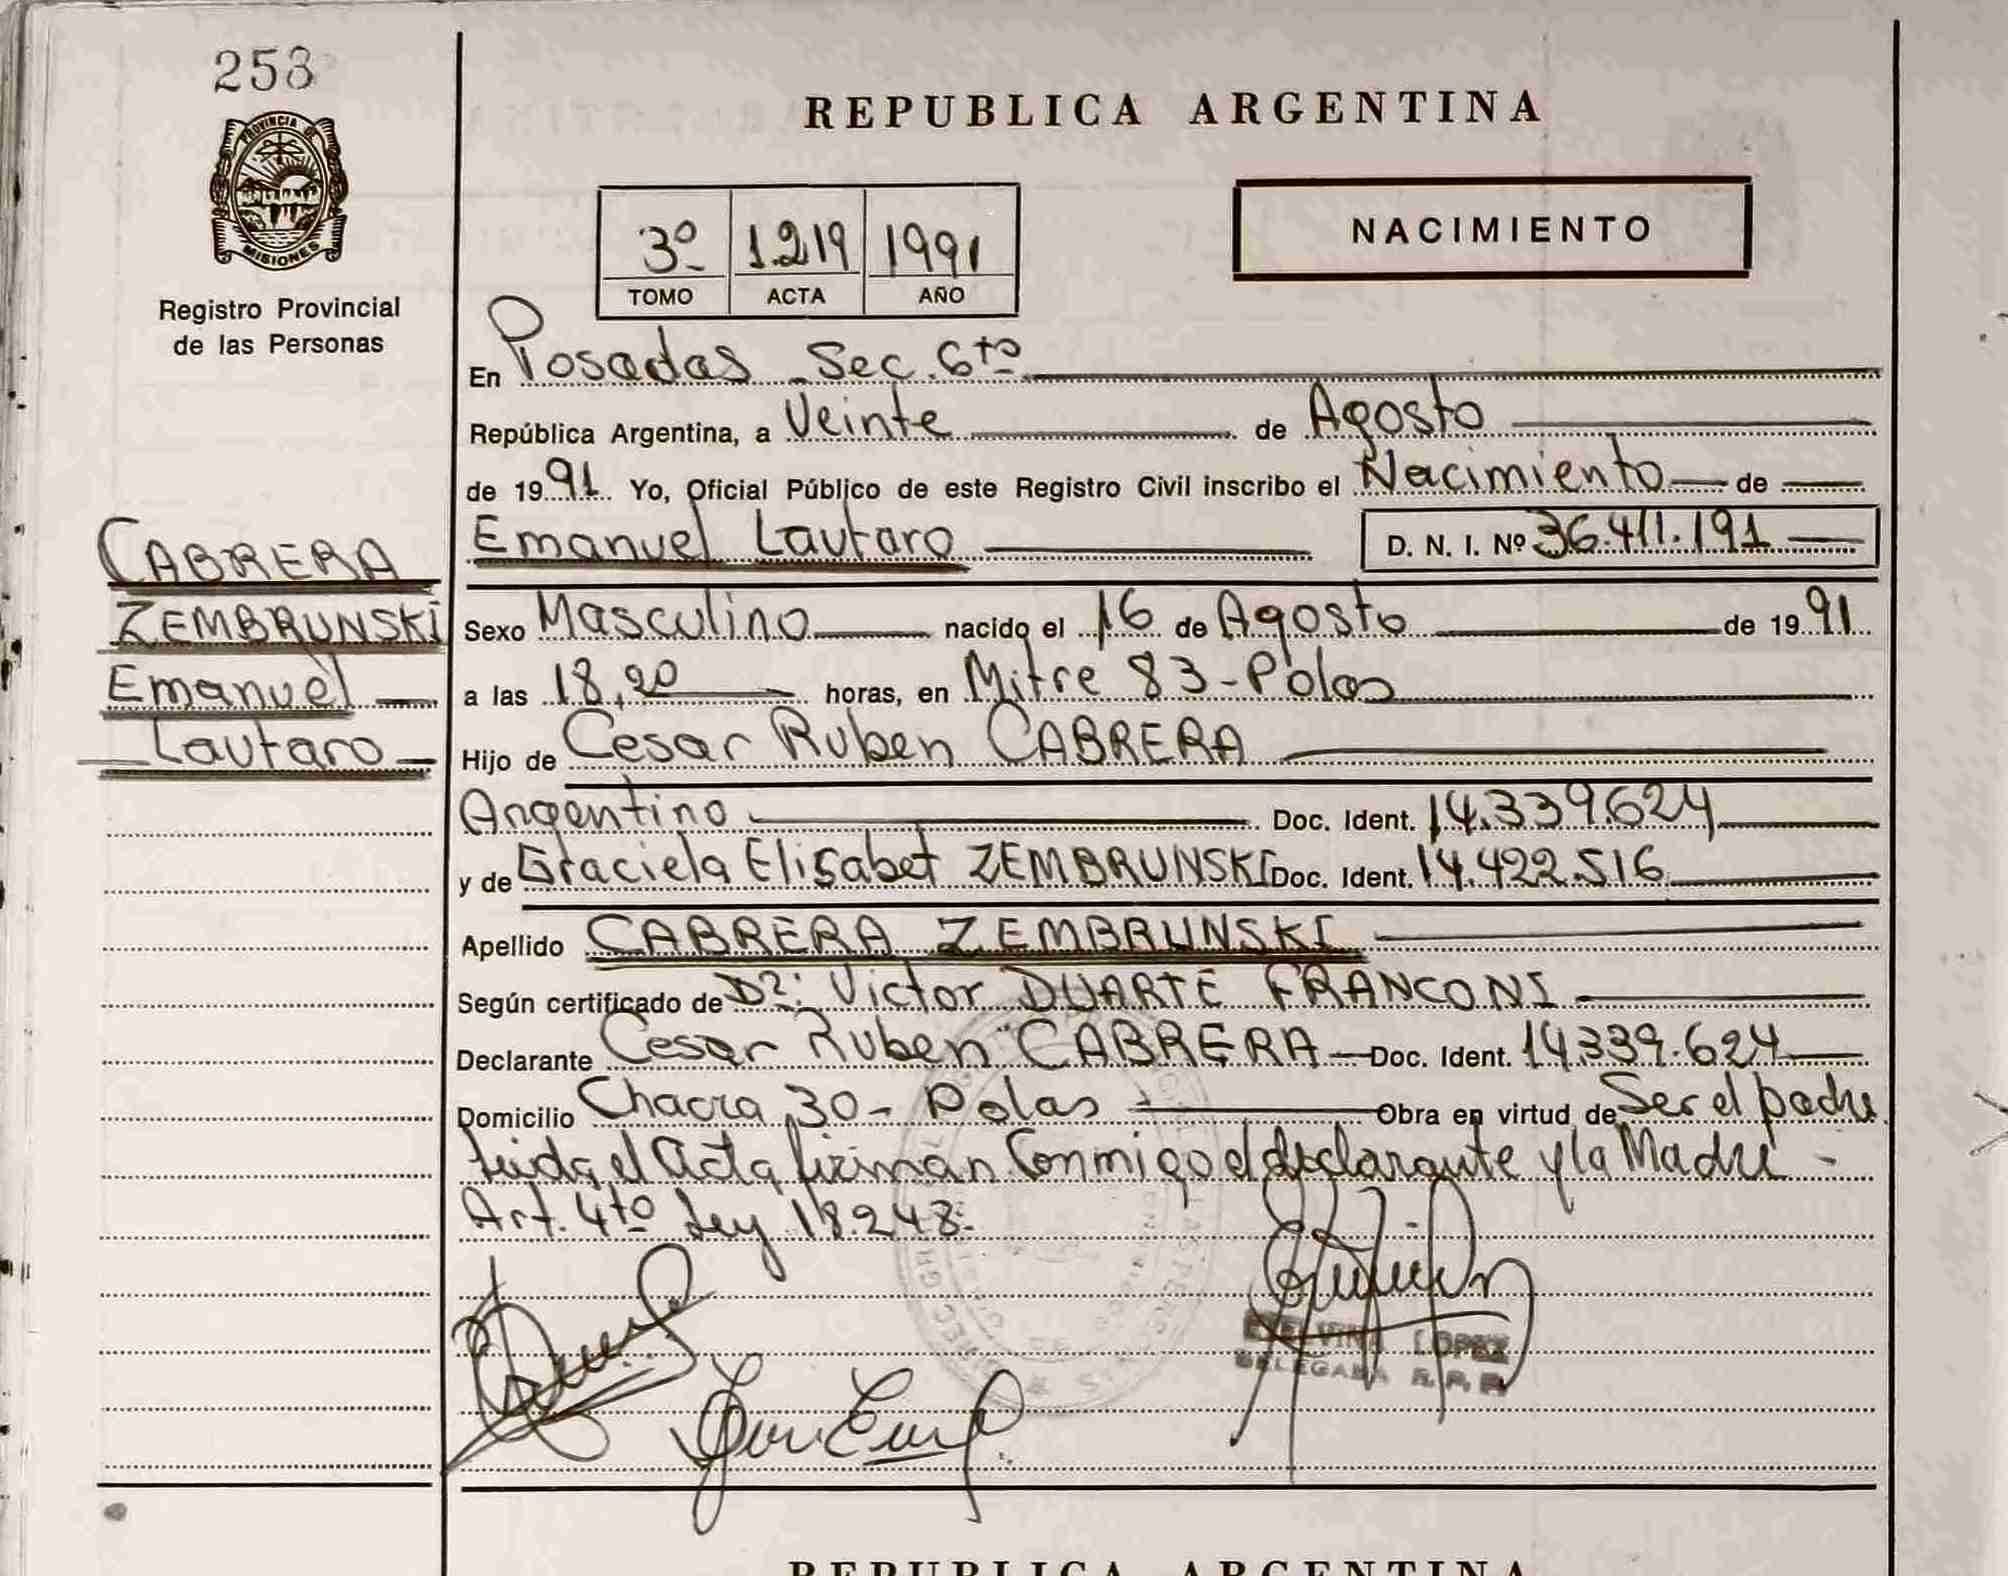 258
PROVINCIA DE
MISIONES
Registro Provincial
de las Personas
CABRERA
ZEMBRUNSKI
Emanuel
Lautaro
REPUBLICA ARGENTINA
3º 1.219 1991
TOMO ACTA AÑO
NACIMIENTO
En Posadas Sec. 6ta
República Argentina, a Veinte de Agosto
de 1991 Yo, Oficial Público de este Registro Civil inscribo el Nacimiento de
Emanuel Lautaro D. N. I. Nº 36.411.191
Sexo Masculino nacido el 16 de Agosto de 1991
a las 18,20 horas, en Mitre 83 - Pdas
Hijo de Cesar Ruben CABRERA
Argentino Doc. Ident. 14.339.624
y de Graciela Elisabet ZEMBRUNSKI Doc. Ident. 14.422.516
Apellido CABRERA ZEMBRUNSKI
Según certificado de Dr: Victor DUARTE FRANCONI
Declarante Cesar Ruben CABRERA Doc. Ident. 14.339.624
Domicilio Chacra 30 - Pdas Obra en virtud de Ser el padre
Leida el Acta firman Conmigo el declarante y la Madre -
Art. 4to Ley 18.248.
LOPEZ
DELEGADA R. P. P.
REPUBLICA ARGENTINA